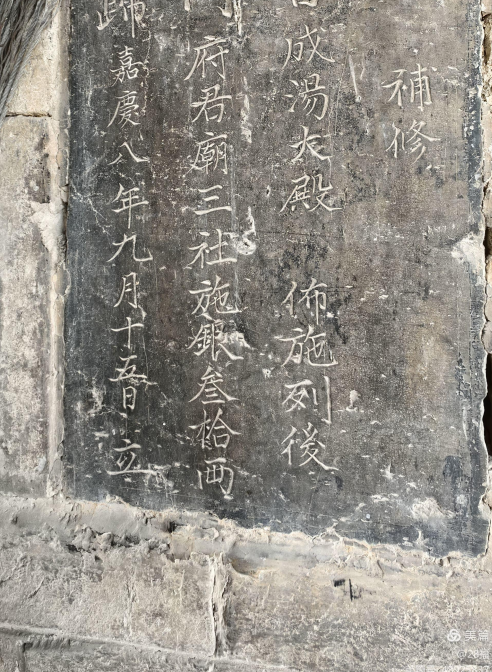 補修
成湯大殿 佈施列後
府君廟三社施銀叁拾兩
嘉慶八年九月十五日立
美篇